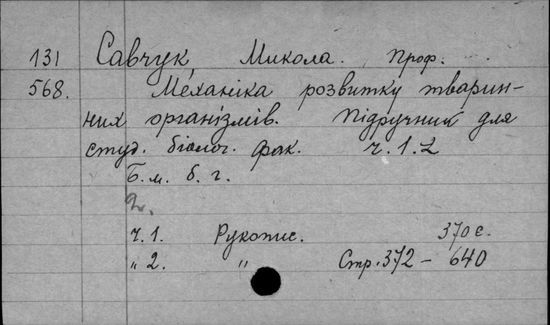 131 Савчук, Микола. Проф.
568. Механіка розвитку тварин-
них організмів. Підручний для
студ. біолог. фак. ч. 1. 2
Б. м. б. г.
2.
ч. 1. Рукопис. 370 с.
„ 2. „ Стр. 372 – 640